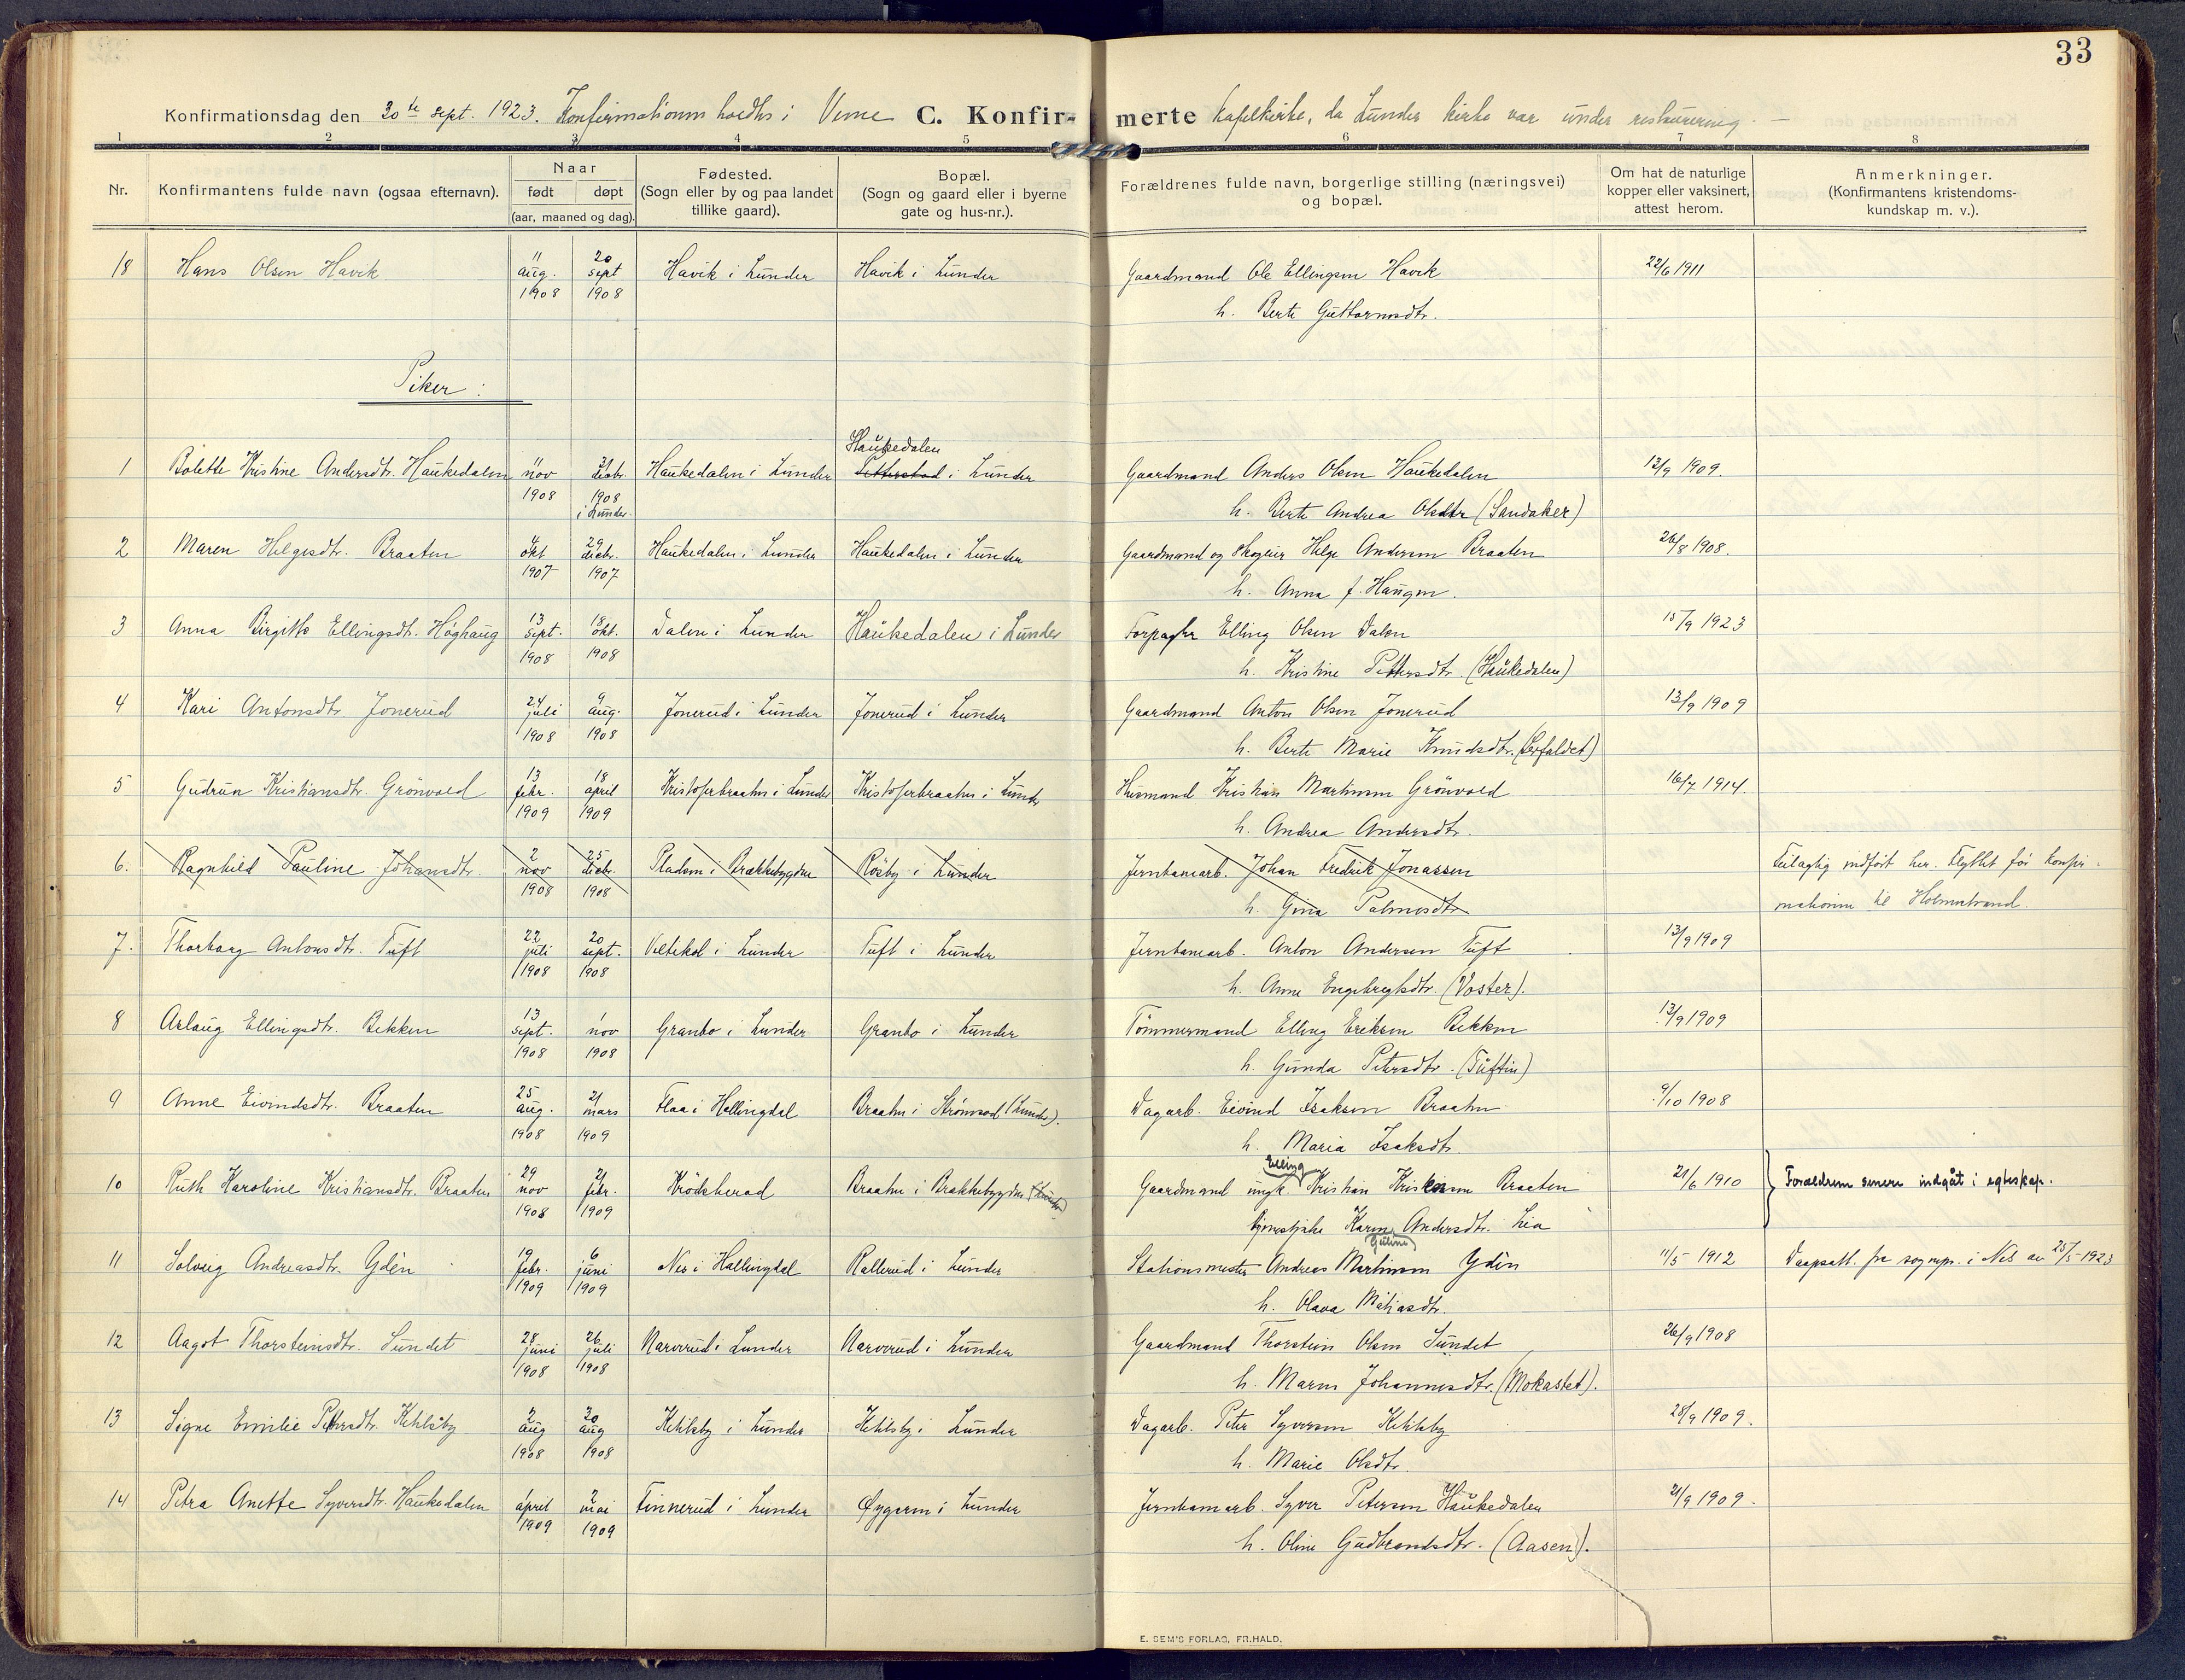 33
Konfirmationsdag den 30te sept. 1923. Konfirmationen holdtes i Veme C. Konfirmerte kapelkirke, da Lunder kirke var under restaurering.
1 2 3 4 5 6 7 8
Nr. Konfirmantens fulde navn (ogsaa efternavn). Naar født døpt (aar, maaned og dag). Fødested. (Sogn eller by og paa landet tillike gaard). Bopæl. (Sogn og gaard eller i byerne gate og hus-nr.). Forældrenes fulde navn, borgerlige stilling (næringsvei) og bopæl. Om hat de naturlige kopper eller vaksinert, attest herom. Anmerkninger. (Konfirmantens kristendoms-kundskap m. v.).
18 Hans Olsen Havik 11 aug. 1908 20 sept 1908 Havik i Lunder Havik i Lunder Gaardmand Ole Ellingsen Havik 22/6 1911
h. Berte Guttormsdtr.
Piker:
1 Bolette Kristine Andersdtr. Haukedalen nov 1908 decbr. 1908 i Lunder. Haukedalen i Lunder Haukedalen i Lunder Gaardmand Anders Olsen Haukedalen 13/9 1909.
h. Berte Andrea Olsdtr (Sandaker)
2 Maren Helgesdtr. Braaten 4 okt 1907 29 decbr. 1907 Haukedalen i Lunder Haukedalen i Lunder Gaardmand og skogeier Helge Andersen Braaten 26/8 1908.
h. Anna f. Haugen.
3 Anna Birgitte Ellingsdtr. Høghaug 13 sept. 1908 18 okt. 1908 Dalen i Lunder Haukedalen i Lunder Forpagter Elling Olsen Dalen 15/9 1923
h. Kristine Pettersdtr. (Haukedalen)
4 Kari Antonsdtr Jonerud 24 juli 1908 9 aug. 1908 Jonerud i Lunder Jonerud i Lunder Gaardmand Anton Olsen Jonerud 13/9 1909
h. Berte Marie Knudsdtr.
5 Gudrun Kristiansdtr. Grönvold 13 febr. 1909 18 april 1909 Kristoferbraaten i Lunder Kristoferbraaten i Lunder Husmand Kristian Martinsen Grönvold 16/7 1914.
h. Andrea Andersdtr.
6. Ragnhild Pauline Johansdtr. 2 nov 1908 25 decbr. 1908 Pladsen i Brækkebygden Rösby i Lunder Jernbanearb. Johan Fredrik Jonassen Feilagtig indført her. Flyttet før konfir-
h. Gina Palmesdtr mationen til Holmestrand.
7. Thorbørg Antonsdtr. Tuft 22 juli 1908 20 sept. 1908 Veltekol i Lunder Tuft i Lunder Jernbanearb. Anton Andersen Tuft 13/9 1909
h. Anne Engebregtsdtr. (Voster).
8 Aslaug Ellingsdtr. Bekken 13 sept. 1908 1 nov 1908 Granbo i Lunder Granbo i Lunder Tömmermand Elling Eriksen Bekken 13/9 1909
h. Gunda Petersdtr. (Tuftin)
9 Anne Eivindsdtr. Braaten 25 aug. 1908 21 mars 1909 Flaa i Hallingdal Braaten i Strömsod (Lunder). Dagarb. Eivind Isaksen Braaten 9/10 1908
h. Maria Isaksdtr.
10 Ruth Karoline Kristiansdtr. Braaten 29 nov 1908 21 febr. 1909 Krödsherad Braaten i Brækkebygden (Lunder) Gaardmand ungk. Elling Kristian Braaten 21/6 1910 Forældrene senere indgåt i egteskap.
Karen Guline Andersdtr. Lia
11 Solveig Andreasdtr. Ydén 19 febr. 1909 6 juni 1909 Nes i Hallingdal Rallerud i Lunder Stationsmester Andreas Martinsen Ydén 11/5 1912 Daapsatt. fra sognepr. i Nes av 25/5 1923
h. Olava Matiasdtr.
12 Aagot Thorsteinsdtr. Sundet 28 juni 1908 26 juli 1908 Narverud i Lunder Narverud i Lunder Gaardmand Thorstein Olsen Sundet 26/9 1908
h. Maren Johannesdtr. (Mokastet).
13 Signe Emilie Petersdtr. Ketilsby 2 aug 1908 30 aug 1908 Ketilsby i Lunder Ketilsby i Lunder Dagarb. Peter Syversen Ketilsby 28/9 1909.
h. Marie Olsdtr.
14 Petra Anette Syversdtr. Haukedalen 1 april 1909 2 mai 1909 Finnerud i Lunder Øygaren i Lunder Jernbanearb. Syver Petersen Haukedalen 21/9 1909.
h. Oline Gudbrandsdtr. (Aasen).
E. SEM'S FORLAG, FR.HALD.